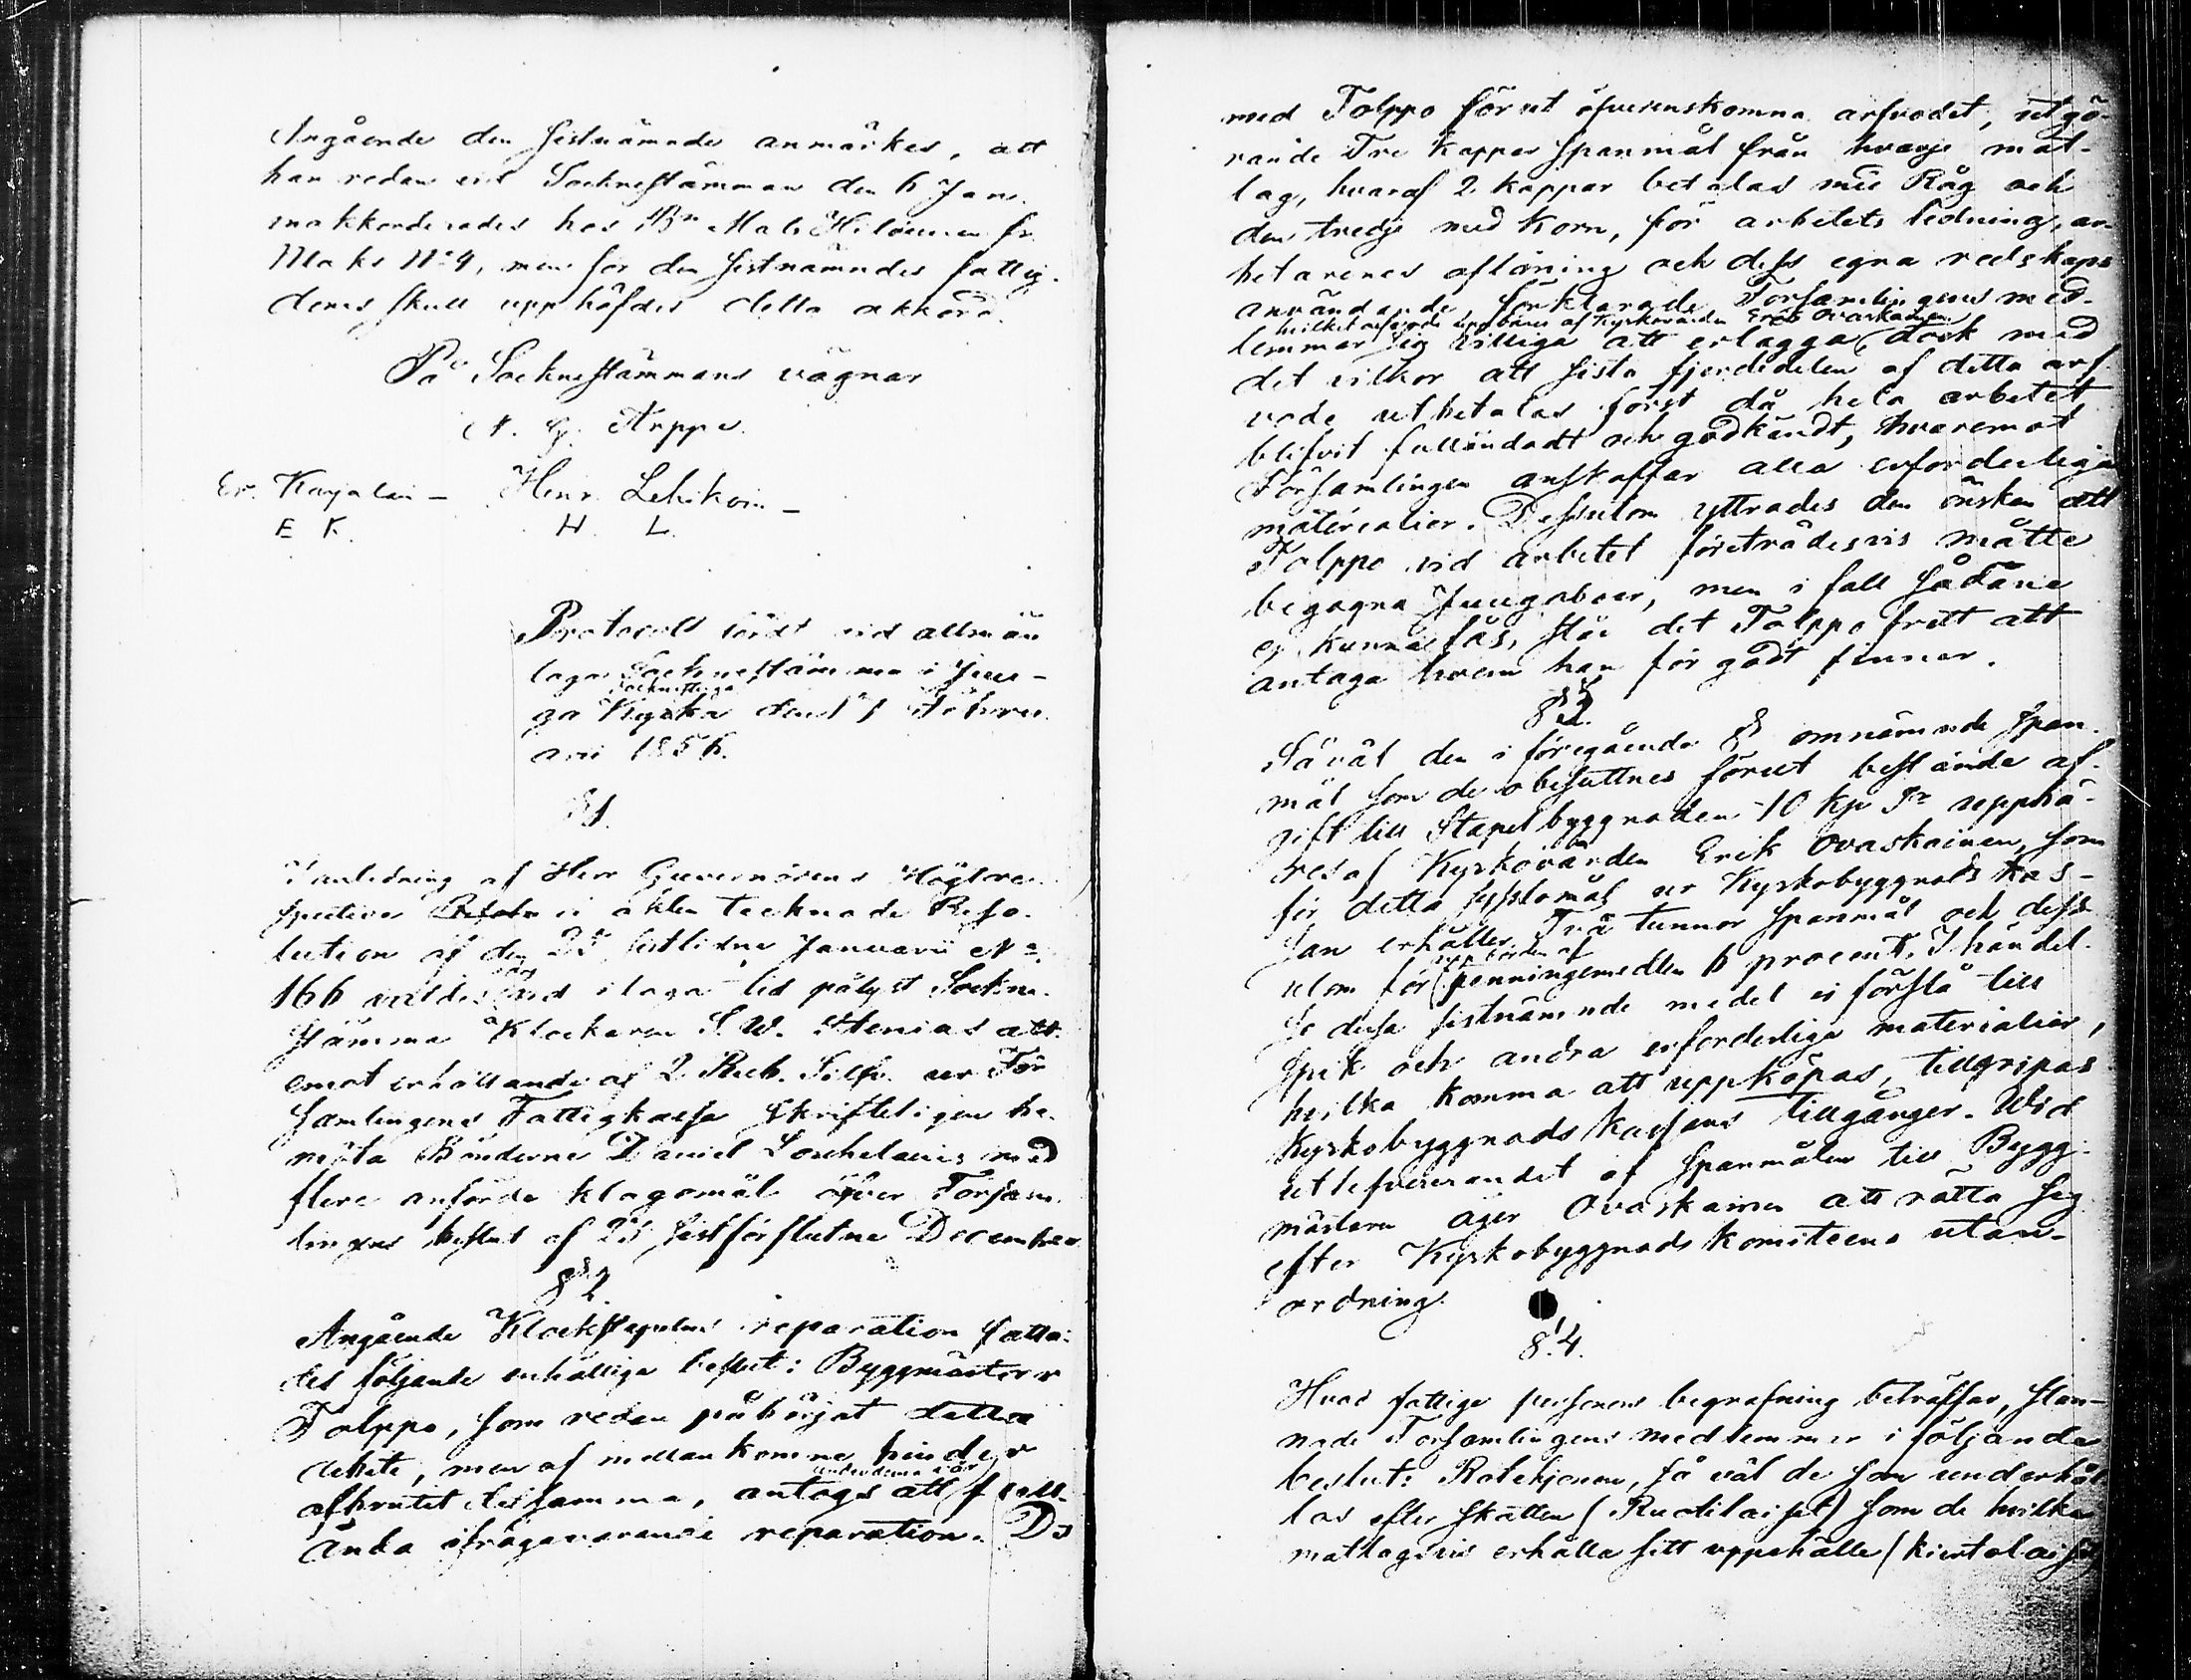 Angående den sistnämnde anmärkes, att
han redan vid Socknestämman den 6 Jan.
inakkorderades hos Bn Mats Hilöinen fr.
Maks No 4, men för den sistnämndes fattig-
doms skull upphäfdes detta akkord.
På Sockneståmmans vägnar
N. G. Arppe.
Er. Karjalai – Henr. Lehikoin –
E K. H. L.
Protocoll fördt vid allmän
laga Sockneståmma i Juu-
ga Kyrka den Februa-
arii 1856.
§1.
I anledning af Herr Guvernörens Högtre-
spective i akten tecknade Reso-
lution af den sistlidne Januarii No
166 valdes vid i laga tid pålyst Sockne-
stämma Klockaren S. W. Stenius att
emot erhållande af 2 Rub. Silfr. ur För-
samlingens Fattigkassa skrifteligen be-
möta Bönderne Daniel med
flere anförde klagomål öfver Försam-
lingens beslut af 23 sistförflutne December
§2.
Angående Klockstapelns reparation fatta-
des följande enhälliga beslut: Byggmästaren
Tolppo, som redan påbörjat detta
arbete, men af mellankomne hinder
afbrutit detsamma, antogs att full-
ända ifrågavarande reparation. De
med Tolppo förut öfverenskomna arfvodet, utgö-
rande Tre Kappar Spanmål från hvarje mat-
lag, hvaraf 2 kappar betalas med Råg och
den tredje med Korn, för arbetets ledning, ar-
betarenes aflöning och dess egna redskaps
användande, förklarade Församlingens med-
hvilket arfvode uppbäres af Kyrkovärden Erik Ovaskainen
lemmar sig villiga att erlägga, dock med
det vilkor att sista fjerdedelen af detta arf-
vode utbetalas först då hela arbetet
blifvit fulländadt och godkändt, hvaremot
Församlingen anskaffar alla erforderliga
materialier. Dessutom yttrades den önskan att
Tolppo vid arbetet företrädesvis måtte
begagna Juugaboer, men i fall sådane
ej kunna fås, står det Tolppo fritt att
antaga hvem han för godt finner.
§3.
Såväl den i föregående § omnämnde Span-
mål som de obesuttnes förut bestämde af-
gift till Stapelbyggnaden 10 kp Sr uppbä-
res af Kyrkovärden Erik Ovaskainen, som
för detta sysslomål ur Kyrkobyggnads kas-
san erhåller Två tunnor Spanmål och dess-
uppbörden af
utom för penningemedlen 6 procent. I händel-
se dessa sistnämnde medel ei förslå till
Spik och andra erforderliga materialier,
hvilka komma att uppköpas, tillgripas
Kyrkobyggnads kassans tillgånger. Wid
utlefvererandet af Spanmålen till Bygg-
mästaren äger Ovaskainen att rätta sig
efter Kyrkobyggnads komiteens utan-
ordning.
§4.
Hvad fattige personers begrafning beträffar, stan-
nade Församlingens medlemmar i följande
beslut: Rotehjonen, så väl de som underhål-
las efter skatten (Ruotilaiset) som de hvilka
matlagsvis erhålla sitt uppehälle (kiertolaiset